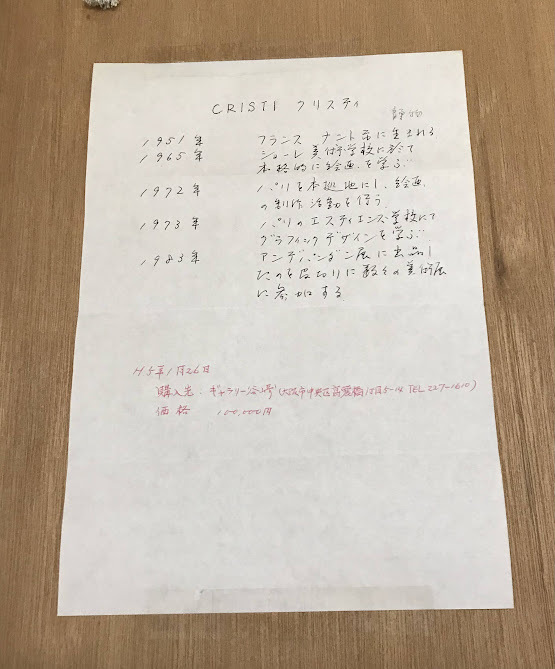 CRISTI クリスティ
1951年 フランス ナント市に生まれる
1965年 ショーレ美術学校に於て
本格的に絵画を学ぶ
1972年 パリを本拠地にし、絵画
の制作活動を行う
1973年 パリのエスティエンヌ学校にて
グラフィックデザインを学ぶ
1983年 アンデパンダン展に出品し
たのを皮切りに数々の美術展
に参加する
H5年1月26日
購入先・ギャラリー(大阪市中央区高麗橋1丁目5-14 TEL 227-1610)
価格 100,000円